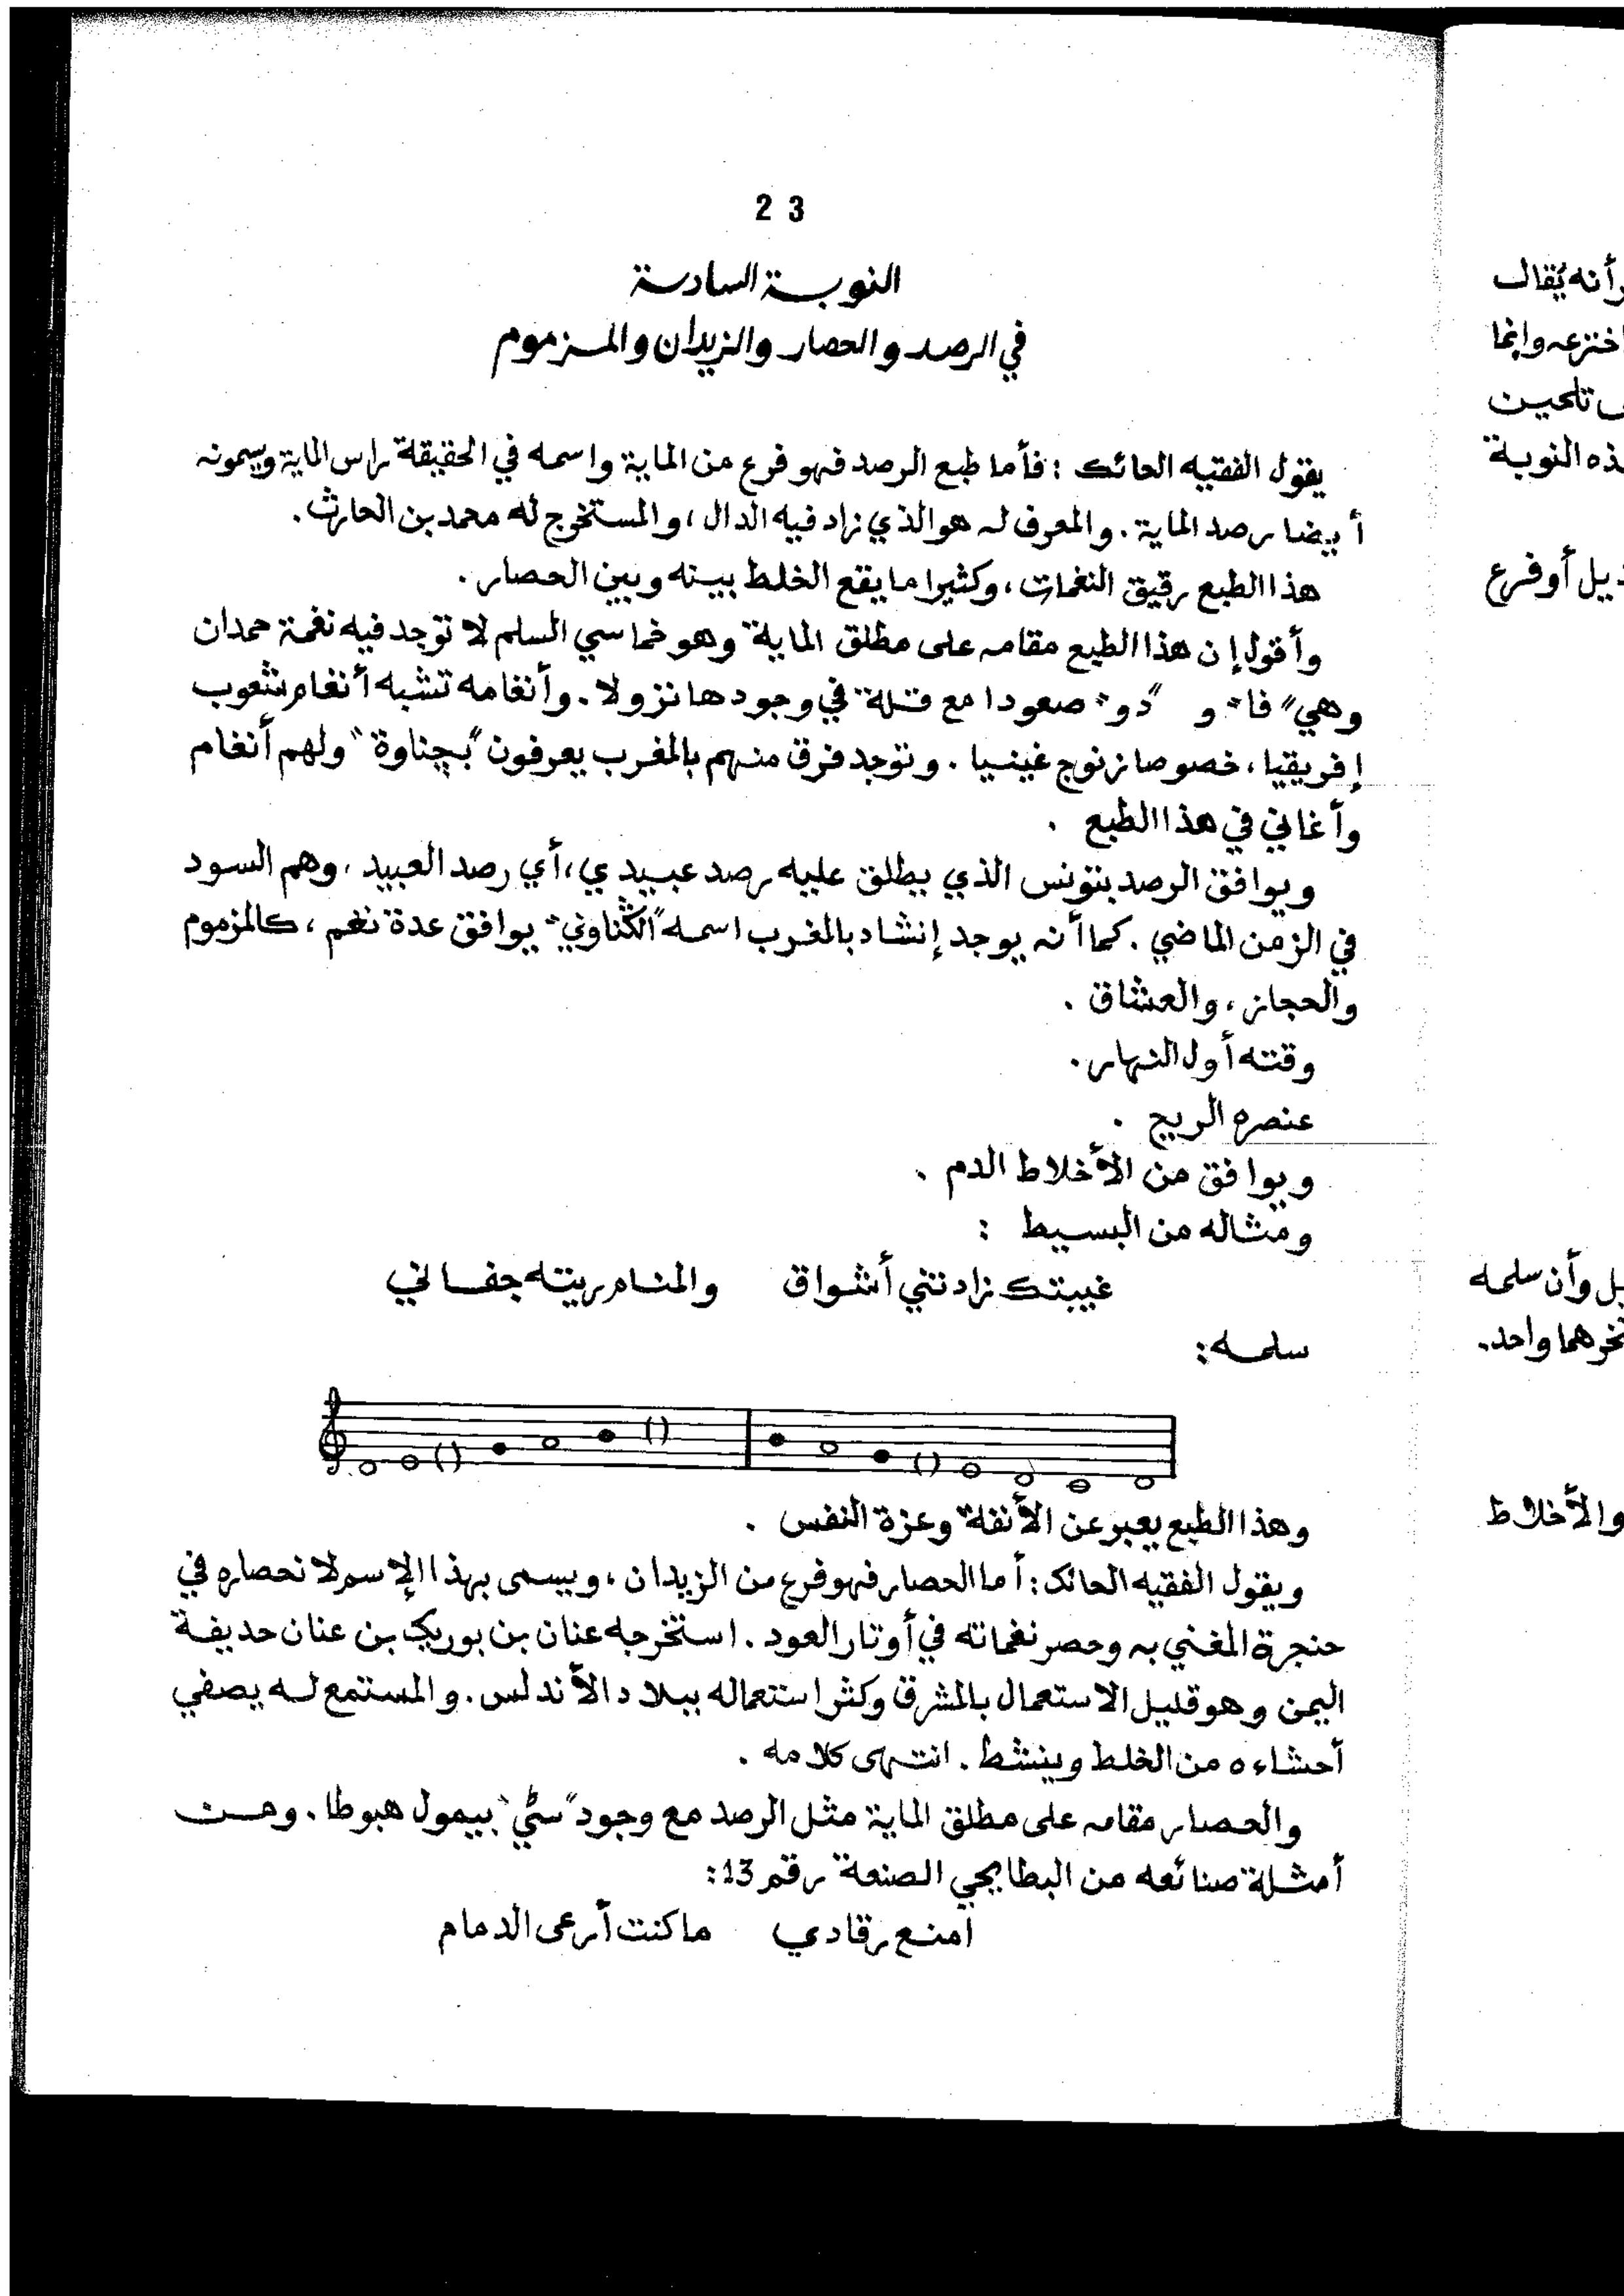 23
النوبة السادسة
في الرصد والحصار والزيدان والمزموم
يقول الفقيه الحائك : فأما طبع الرصد فهو فرع من الماية واسمه في الحقيقة راس الماية ويسمونه
أيضا رصد الماية . والمعرف له هو الذي زاد فيه الدال ، والمستخرج له محمد بن الحارث .
هذا الطبع رقيق النغمات ، وكثيرا ما يقع الخلط بينه وبين الحصار .
وأقول إن هذا الطبع مقامه على مطلق الماية وهو خماسي السلم لا توجد فيه نغمة حمدان
وهي "فا" و "دو" صعودا مع قلة في وجودها نزولا . وأنغامه تشبه أنغام شعوب
إفريقيا ، خصوصا زنوج غينيا . وتوجد فرق منهم بالمغرب يعرفون "بجناوة" ولهم أنغام
وأغاني في هذا الطبع .
ويوافق الرصد بتونس الذي يطلق عليه رصد عبيدي ، أي رصد العبيد ، وهم السود
في الزمن الماضي . كما أنه يوجد إنشاد بالمغرب اسمه "الڭناوي" يوافق عدة نغم ، كالمزموم
والحجاز ، والعشاق .
وقته أول النهار .
عنصره الريح .
ويوافق من الأخلاط الدم .
ومثاله من البسيط :
غيبتك زادتني أشواق والمنام ريته جفاني
سلمه :
وهذا الطبع يعبر عن الأنفة وعزة النفس .
ويقول الفقيه الحائك : أما الحصار فهو فرع من الزيدان ، ويسمى بهذا الإسم لانحصاره في
حنجرة المغني به وحصر نغماته في أوتار العود . استخرجه عنان بن بوريك بن عنان حديفة
اليمن وهو قليل الاستعمال بالمشرق وكثر استعماله ببلاد الأندلس . والمستمع له يصفي
أحشاءه من الخلط وينشط . انتهى كلامه .
والحصار مقامه على مطلق الماية مثل الرصد مع وجود "سي" بيمول هبوطا . ومن
أمثلة صنائعه من البطايحي الصنعة رقم 13 :
امنع رقادي ما كنت أرعى الدمام
أنه يُقال
وإنما
تلحين
النوبة
أو فرع
وأن سلمه
واحد .
والأخلاط